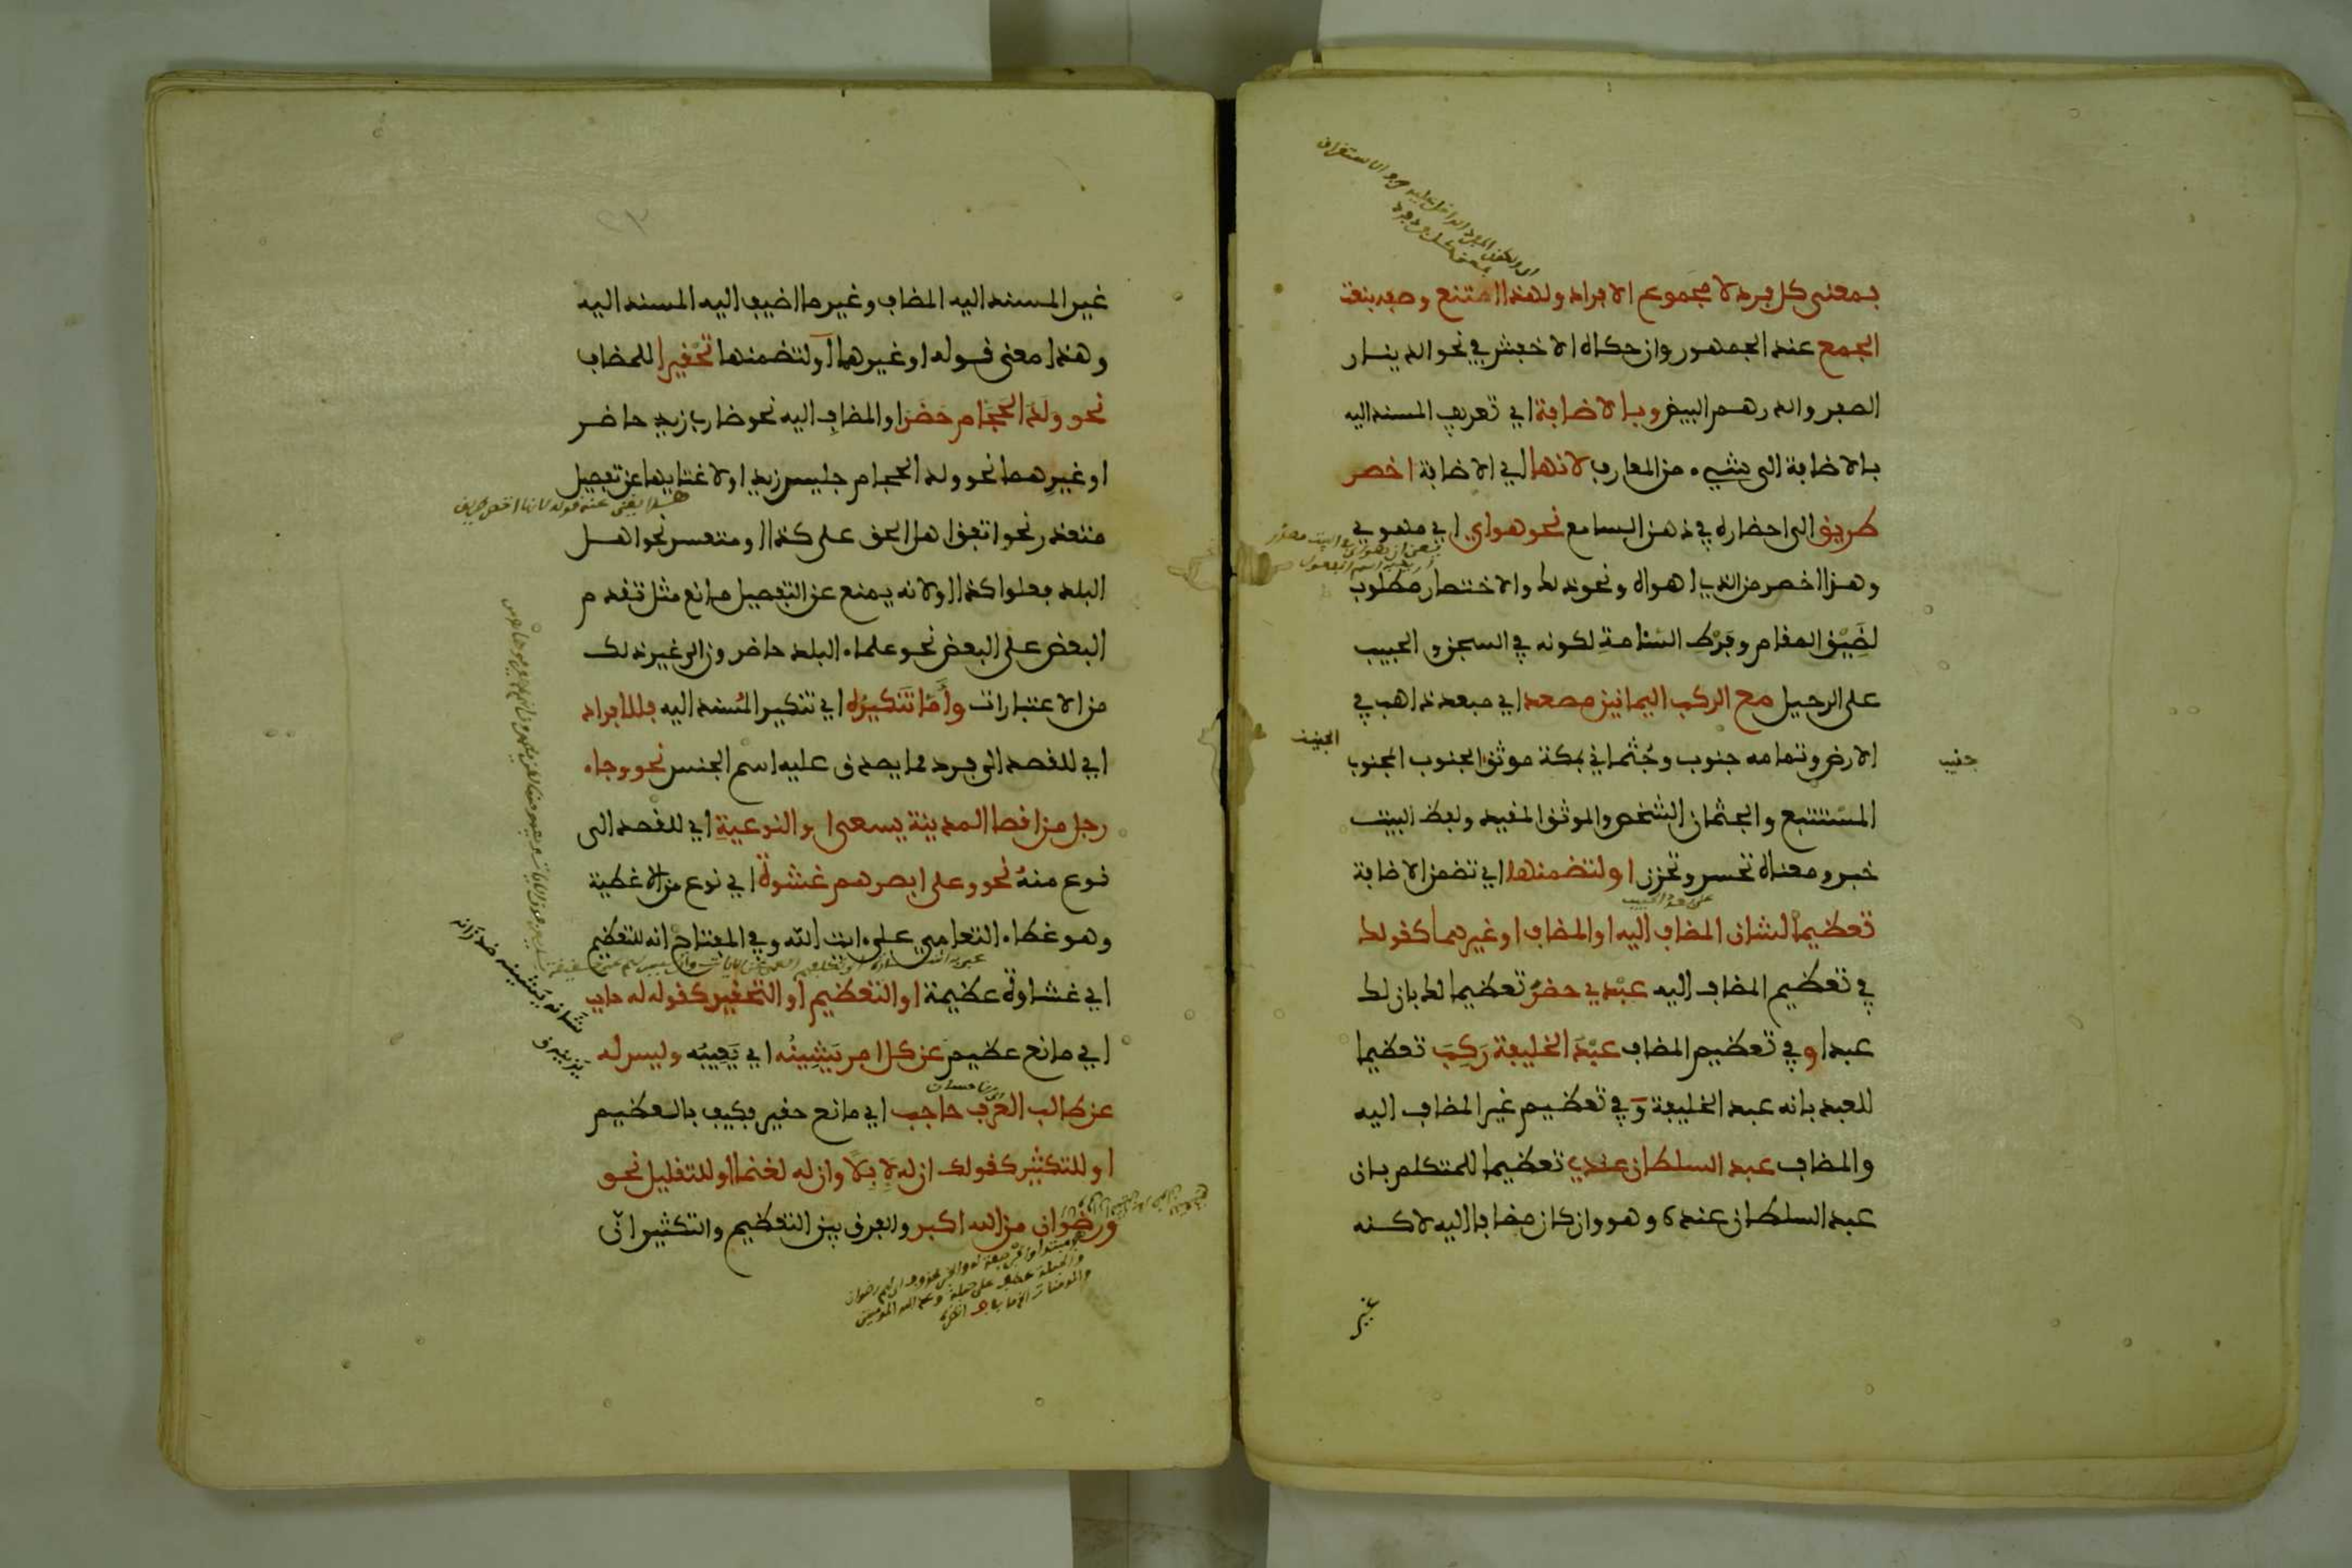 بمعنى كل فرد لا مجموع الافراد ولهذا امتنع وصفه بنعت
الجمع عند الجمهور وان حكاه الاخفش في نحو الدينار
الصفر والدرهم البيض وبالاضافة اي تعريف المسند اليه
بالاضافة الى شيء من المعارف لانها اي الاضافة اخصر
طريق الى احضاره في ذهن السامع نحو هواي اي مهويي
وهذا اخصر من الذي اهواه ونحو ذلك والاختصار مطلوب
لضَيْق المقام وفَرْط السئامة لكونه في السجن والحبيب
على الرحيل مع الركب اليمانين مصعد اي مبعد ذاهب في
الارض وتمامه جنوب وجُثماني بمكة موثق الجنوب المجنوب
الجنيب
جنيب
المستتبع والجثمان الشخص والموثق المقيد ولفظ البيت
خبر ومعناه تحسر وتحزن او لتضمنها اي تضمن الاضافة
تعظيما لشان المضاف اليه او المضاف او غيرهما كقولك
في تعظيم المضاف اليه عبْدي حضرَ تعظيما لك بان لك
عبدا و في تعظيم المضاف عبْدُ الخليفة رَكِبَ تعظيما
للعبد بانه عبد الخليفة وَ في تعظيم غير المضاف اليه
والمضاف عبد السلطان عندي تعظيما للمتكلم بان
عبد السلطان عنده وهو وان كان مضافا اليه لاكنه
غير
غير المسند اليه المضاف وغير ما اضيف اليه المسند اليه
وهذا معنى قوله او غيرهما او لتضمنها تحقيرا للمضاف
نحو ولَدُ الحَجَّام حَضَرَ او المضافِ اليه نحو ضارب زيد حاضر
او غيرِهما نحو ولد الحجام جليس زيد او لاغنايها عن تفصيل
متعذر نحو اتفق اهل الحق على كذا او متعسر نحو اهل
البلد فعلوا كذا او لانه يمنع عن التفصيل مانع مثل تقدم
البعض على البعض نحو علماء البلد حاضرون الى غير ذلك
من الاعتبارات وأمّا تَنكيرُه اي تنكير المُسند اليه فللافراد
اي للقصد الى فرد مما يصدق عليه اسم الجنس نحو وجاء
رجل من اقصا المدينة يسعى او النوعيةِ اي للقصد الى
نوع منهُ نحو وعلى ابصرهم غشوةٌ اي نوع من الاغطية
وهو غطاء التعامي على ءايت الله وفي المفتاح انه للتعظيم
اي غشاوة عظيمة او التعظيم او التحقير كقوله له حاجب
اي مانع عظيم عن كل امر يَشِينُه اي يَعِيبُه وليس له
عن طالب العُرْفِ حاجب اي مانع حقير فكيف بالعظيم
او للتكثير كقولك ان له لإبِلًا وان له لغنما او للتقليل نحو
ورضوان من الله اكبر والفرق بين التعظيم والتكثير انّ